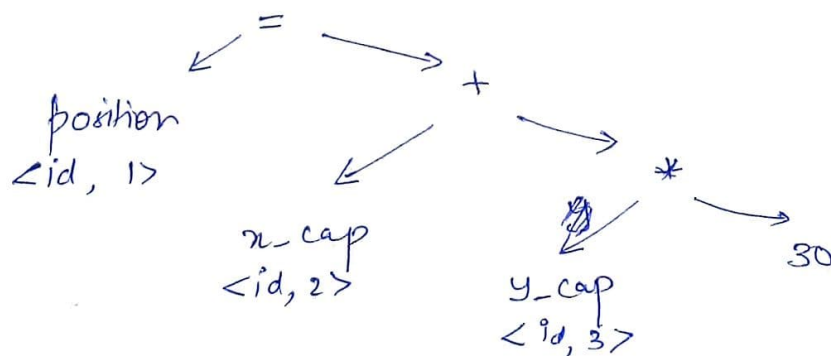 =
+
position
<id, 1>
*
x_cap
<id, 2>
30
y_cap
<id, 3>